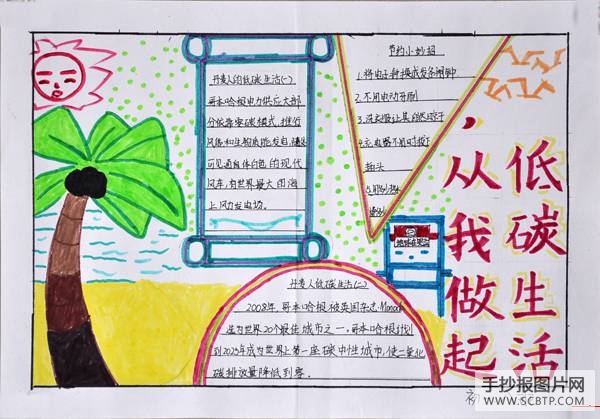 丹麦人的低碳生活(一)
哥本哈根电力供应大部
分依靠零碳模式，推行
风能和生物质能发电，随处
可见通身体白色的现代
风车，有世界最大的海
上风力发电场。
节约小妙招
1.将电子钟换成发条闹钟
2.不用电动牙刷
3.洗衣服让其自然晾干
4.充电器不用时拔下
插头
丹麦人低碳生活(二)
2008年，哥本哈根被英国杂志Monocle
选为世界20个最佳城市之一，哥本哈根计划
到2025年成为世界上第一座碳中性城市，使二氧化
碳排放量降低到零。
低碳生活
，从我做起
初
手抄报图片网
WWW.SCBTP.COM